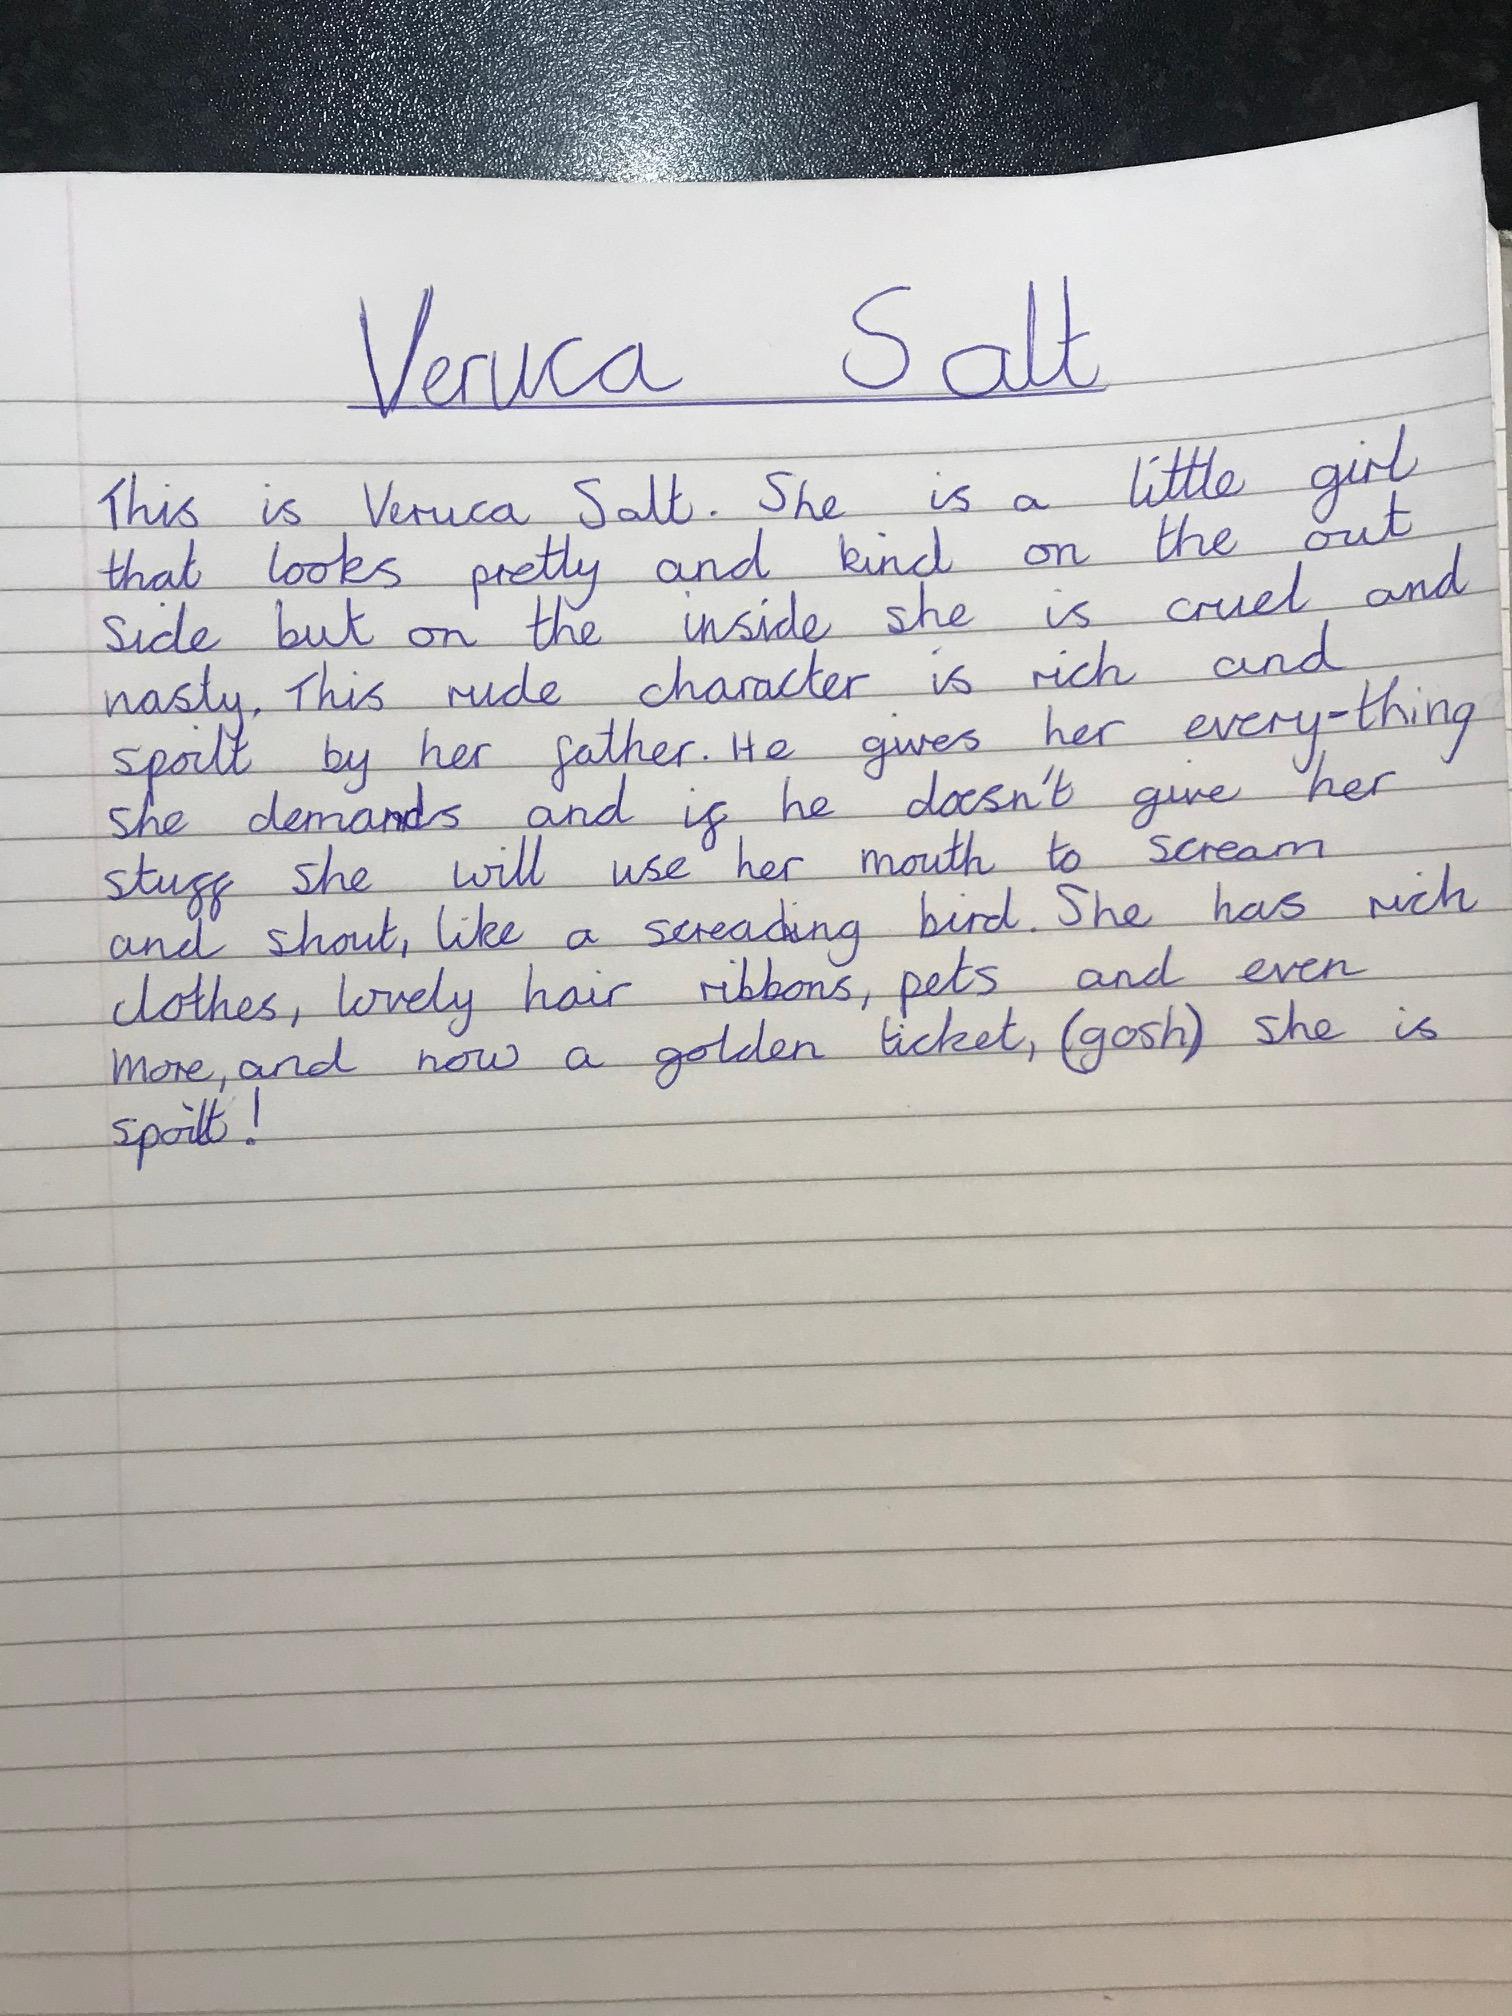 Veruca Salt
This is Veruca Salt. She is a little girl
that looks pretty and kind on the out
side but on the inside she is cruel and
nasty. This rude character is rich and
spoilt by her father. He gives her every-thing
she demands and if he doesn't give her
stuff she will use her mouth to scream
and shout, like a screading bird. She has rich
clothes, lovely hair ribbons, pets and even
more, and now a golden ticket, (gosh) she is
spoilt!